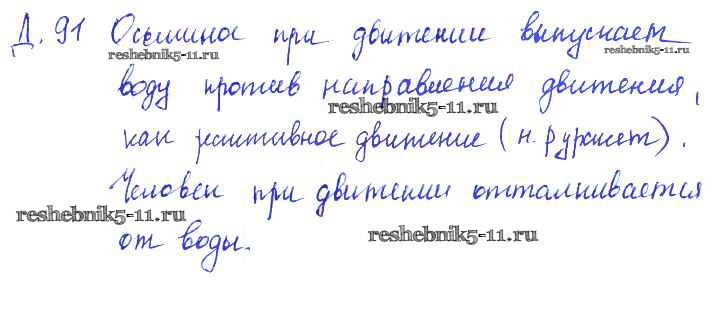 Д. 91 Осьминог при движении выпускает
reshebnik5-11.ru reshebnik5-11.ru
воду против направления движения,
reshebnik5-11.ru
как реактивное движение (н.р).
Человек при движении отталкивается
reshebnik5-11.ru
от воды.
reshebnik5-11.ru